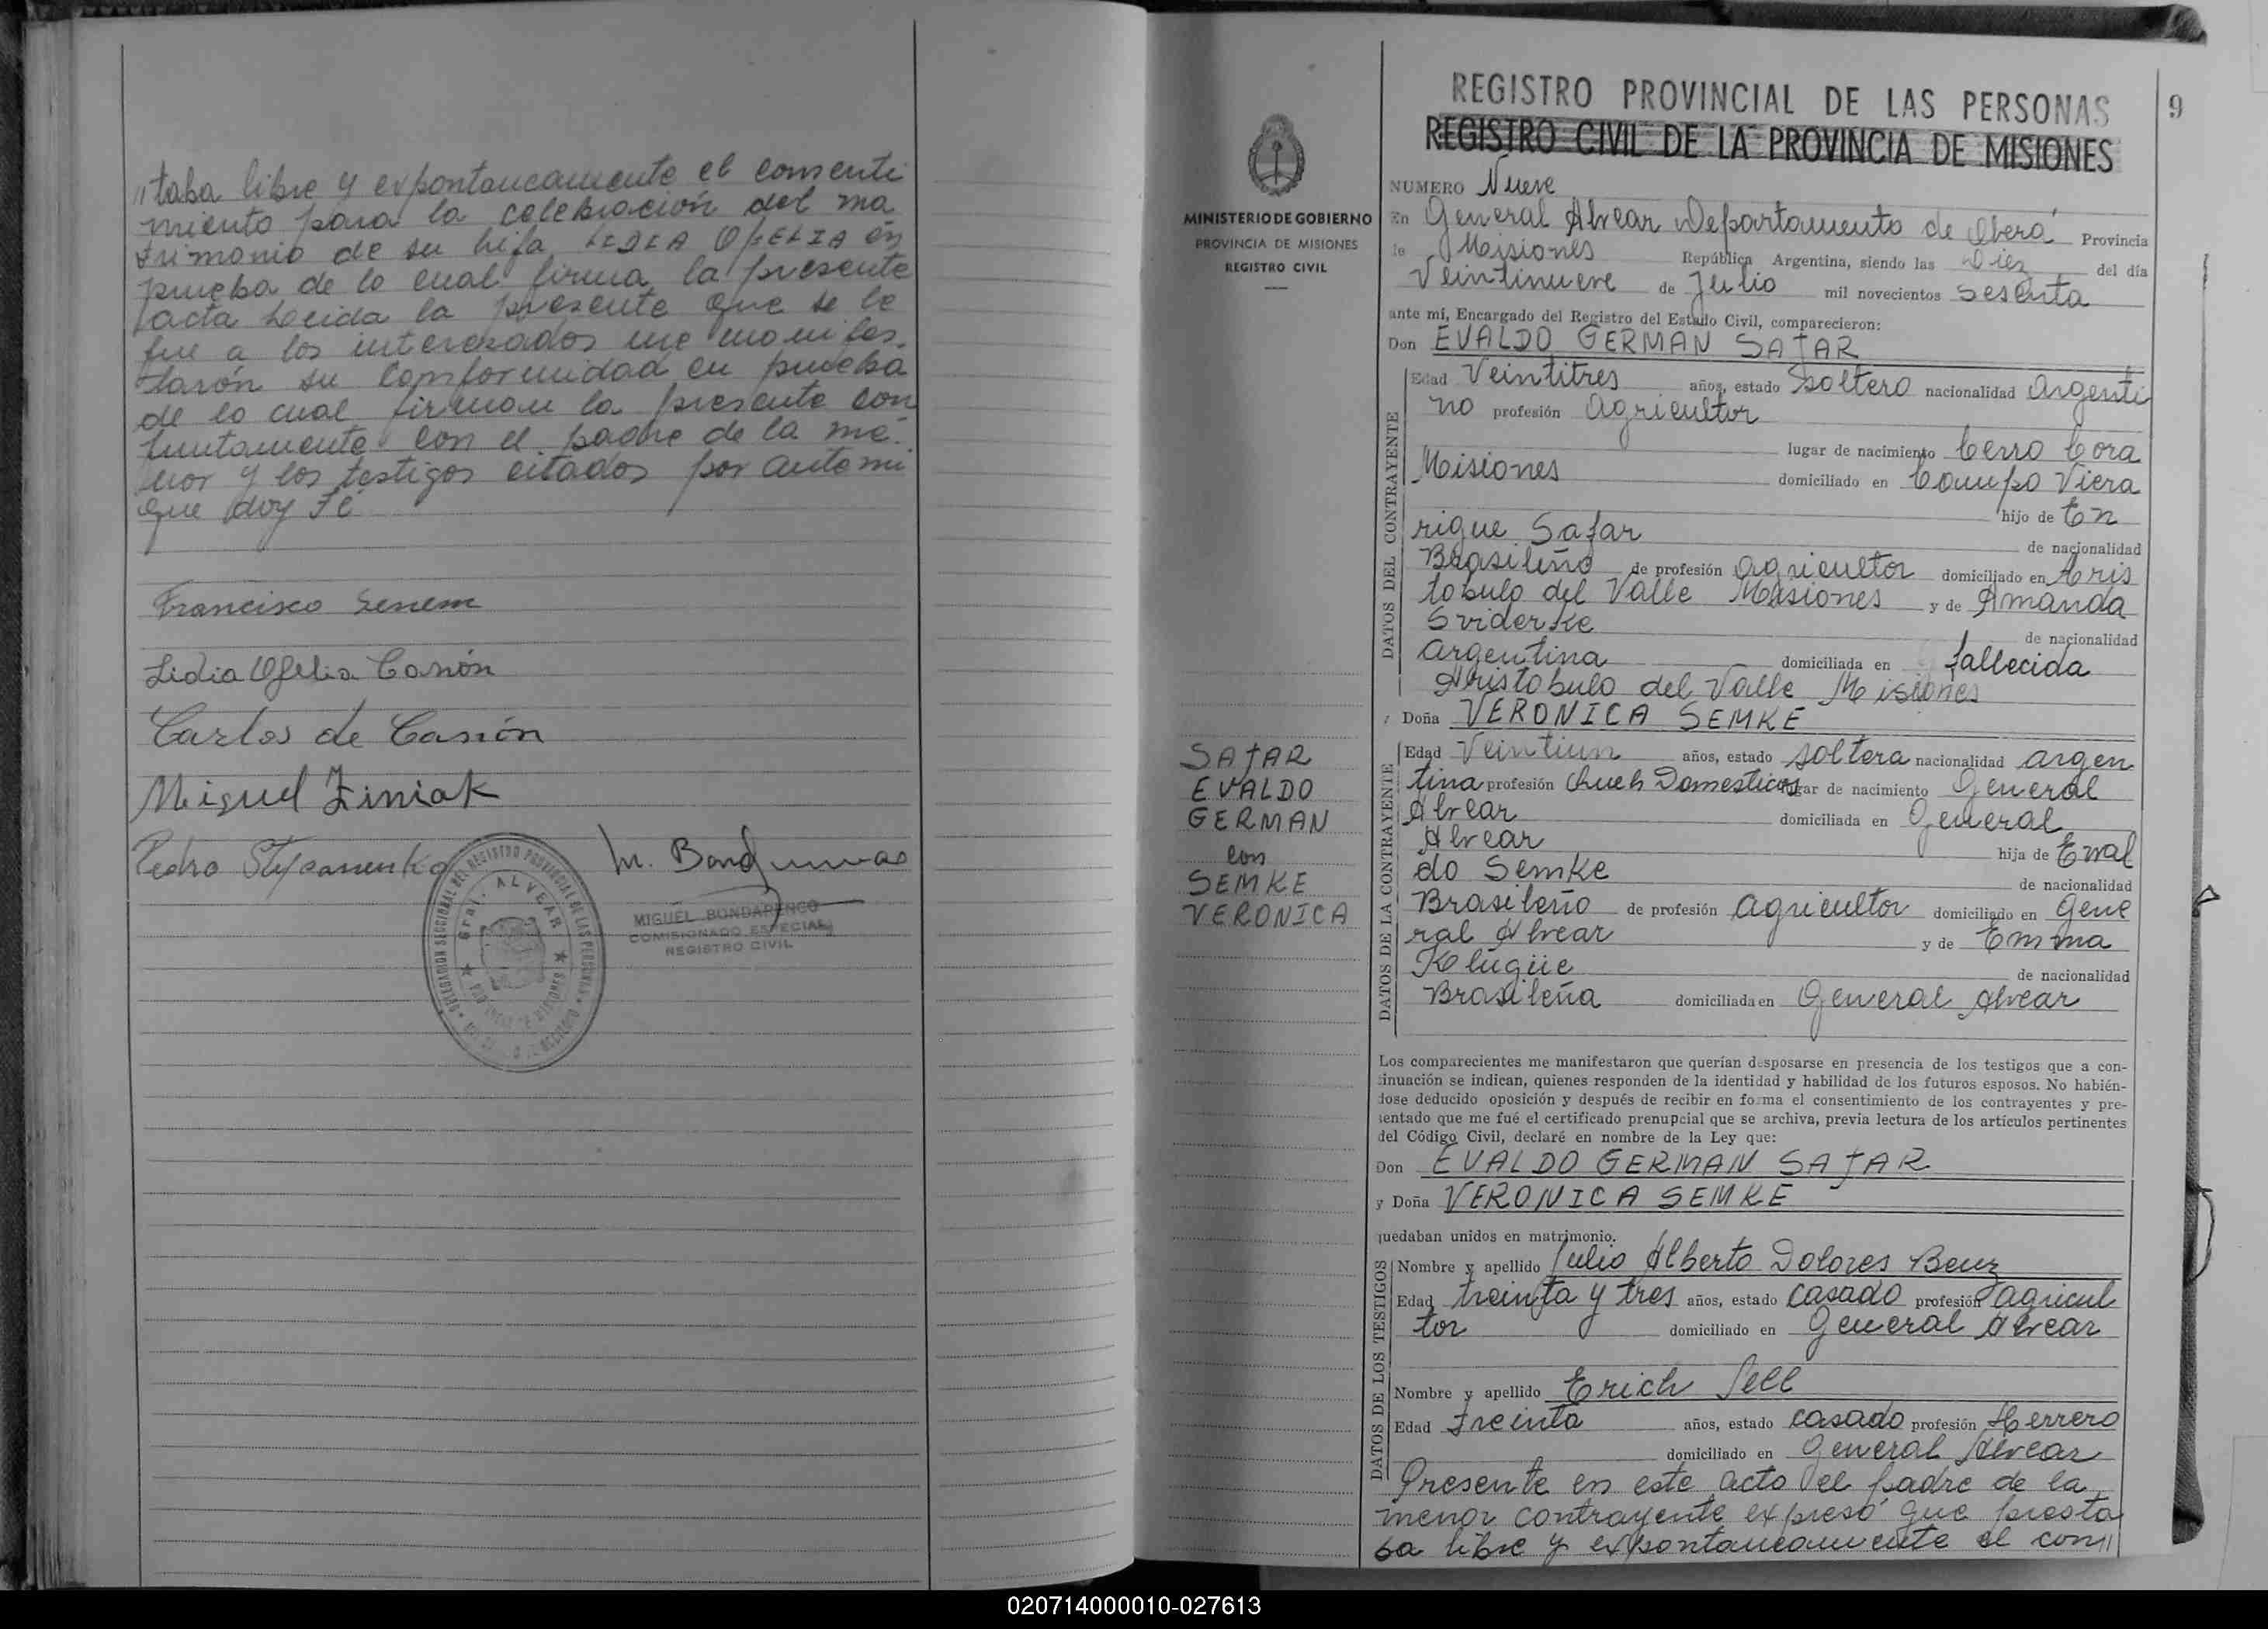 "taba libre y expontaneamente el consenti
miento para la celebración del ma
trimonio de su hija LIDIA OFELIA en
prueba de lo cual firma la presente
acta Leida la presente que se le
fue a los interezados me manifes
tarón su conformidad en prueba
de lo cual firman la presente con
juntamente con el padre de la me
nor y los testigos citados por antemi
que doy Fé
Francisco
Lidia Ofelia
Carlos de
Miguel Ziniak
Pedro
M.
MIGUEL BONDARENCO
COMISIONADO ESPECIAL
REGISTRO CIVIL
Gral. ALVEAR
MINISTERIO DE GOBIERNO
PROVINCIA DE MISIONES
REGISTRO CIVIL
SAFAR
EVALDO
GERMAN
con
SEMKE
VERONICA
REGISTRO PROVINCIAL DE LAS PERSONAS
9
REGISTRO CIVIL DE LA PROVINCIA DE MISIONES
NUMERO Nueve
En General Alvear Departamento de Oberá Provincia
de Misiones República Argentina, siendo las Diez del día
Veintinueve de Julio mil novecientos sesenta
ante mí, Encargado del Registro del Estado Civil, comparecieron:
Don EVALDO GERMAN SAFAR
DATOS DEL CONTRAYENTE
Edad Veintitres años, estado soltero nacionalidad Argenti
no profesión agricultor
lugar de nacimiento Cerro Cora
Misiones domiciliado en Campo Viera
hijo de En
rique Safar
de nacionalidad
Brasileño de profesión agricultor domiciliado en Aris
tobulo del Valle Misiones y de Amanda
Sviderke
de nacionalidad
argentina domiciliada en fallecida
Aristobulo del Valle Misiones
Doña VERONICA SEMKE
DATOS DE LA CONTRAYENTE
Edad Veintiun años, estado soltera nacionalidad argen
tina profesión Queh Domesticos lugar de nacimiento General
Alvear domiciliada en General
Alvear
hija de Eval
do Semke
de nacionalidad
Brasileño de profesión agricultor domiciliado en Gene
ral Alvear y de Emma
Klügüe
de nacionalidad
Brasileña domiciliada en General Alvear
Los comparecientes me manifestaron que querían desposarse en presencia de los testigos que a con-
tinuación se indican, quienes responden de la identidad y habilidad de los futuros esposos. No habién-
dose deducido oposición y después de recibir en forma el consentimiento de los contrayentes y pre-
sentado que me fué el certificado prenupcial que se archiva, previa lectura de los artículos pertinentes
del Código Civil, declaré en nombre de la Ley que:
Don EVALDO GERMAN SAFAR
y Doña VERONICA SEMKE
quedaban unidos en matrimonio.
DATOS DE LOS TESTIGOS
Nombre y apellido Julio Alberto Dolores Benz
Edad treinta y tres años, estado casado profesión agricul
tor domiciliado en General Alvear
Nombre y apellido Erich Sell
Edad treinta años, estado casado profesión Herrero
domiciliado en General Alvear
Presente en este acto el padre de la
menor contrayente expresó que presta
ba libre y expontaneamente el con"
020714000010-027613